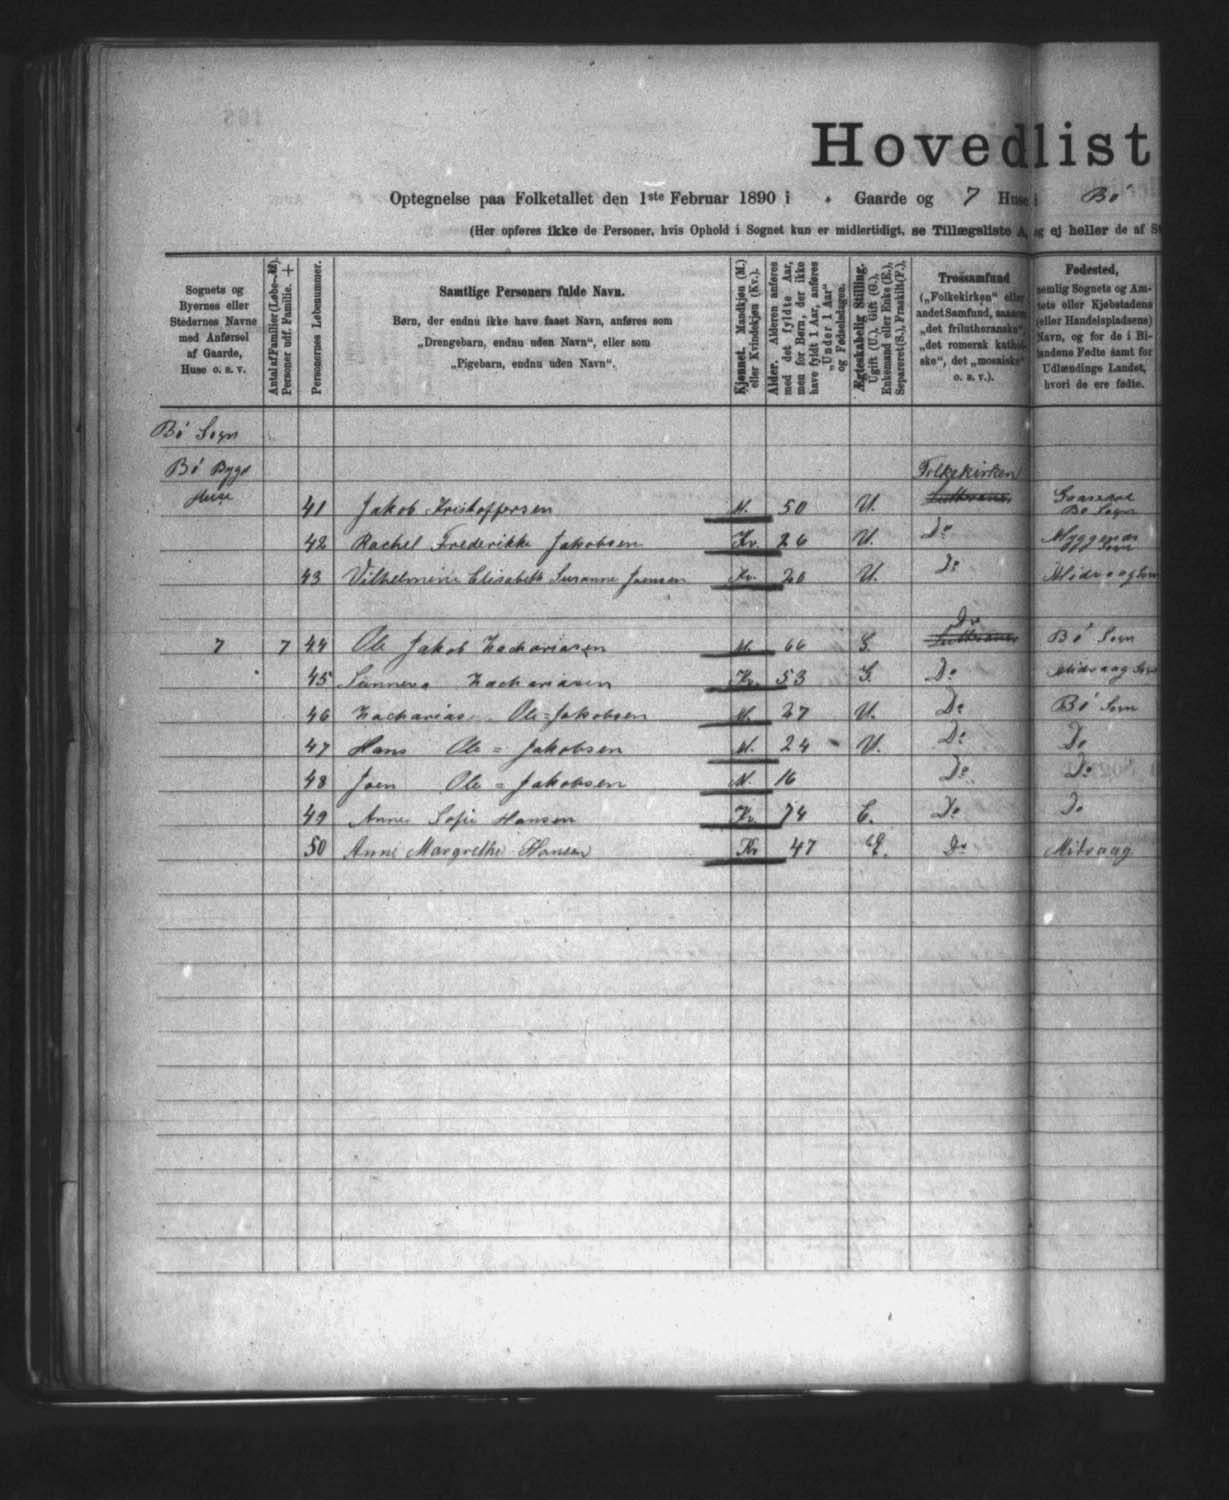 Hovedlist
Optegnelse paa Folketallet den 1ste Februar 1890 i • Gaarde og 7 Huse i Bø
(Her opføres ikke de Personer, hvis Ophold i Sognet kun er midlertidigt, se Tillægsliste A, og ej heller de af
Sognets og
Byernes eller
Stedernes Navne
med Anførsel
af Gaarde,
Huse o. s. v.
Antal af Familier (Løbe-№).
Personer udf. Familie. +
Personernes Løbenummer.
Samtlige Personers fulde Navn.
Børn, der endnu ikke have faaet Navn, anføres som
„Drengebarn, endnu uden Navn“, eller som
„Pigebarn, endnu uden Navn“.
Kjønnet. Mandkjøn (M.)
eller Kvindekjøn (Kv.).
Alder. Alderen anføres
med det fyldte Aar,
men for Børn, der ikke
have fyldt 1 Aar, anføres
„Under 1 Aar“
og Fødselsdagen.
Ægteskabelig Stilling.
Ugift (U.), Gift (G.),
Enkemand eller Enke (E.),
Separeret (S.), Fraskilt (F.).
Trossamfund
(„Folkekirken“ eller
andet Samfund, saasom
„det frilutheranske“,
„det romersk katholske“,
det „mosaiske“
o. s. v.).
Fødested,
nemlig Sognets og Amtets
eller Kjøbstadens
(eller Handelspladsens)
Navn, og for de i Bilandene
Fødte samt for
Udlændinge Landet,
hvori de ere fødte.
Bø Sogn
Bø Bygd Folkekirken
Huse 41 Jakob Kristoffersen M. 50 U. Lutheraner Gaasedal Bø Sogn
42 Rachel Frederikke Jakobsen Kv. 26 U. Do Myggenæs Sogn
43 Vilhelmine Elisabeth Susanne Joensen Kv. 20 U. Do Midvaag Sogn
Do
7 7 44 Ole Jakob Zachariasen M. 66 G. Lutheraner Bø Sogn
45 Sunneva Zachariasen Kv. 53 G. Do Midvaag Sogn
46 Zacharias Ole=Jakobsen M. 27 U. Do Bø Sogn
47 Hans Ole=Jakobsen M. 24 U. Do Do
48 Joen Ole=Jakobsen M. 16 Do Do
49 Anne Sofie Hansen Kv. 74 E. Do Do
50 Anne Margrethe Hansen Kv 47 E. Do Mitvaag